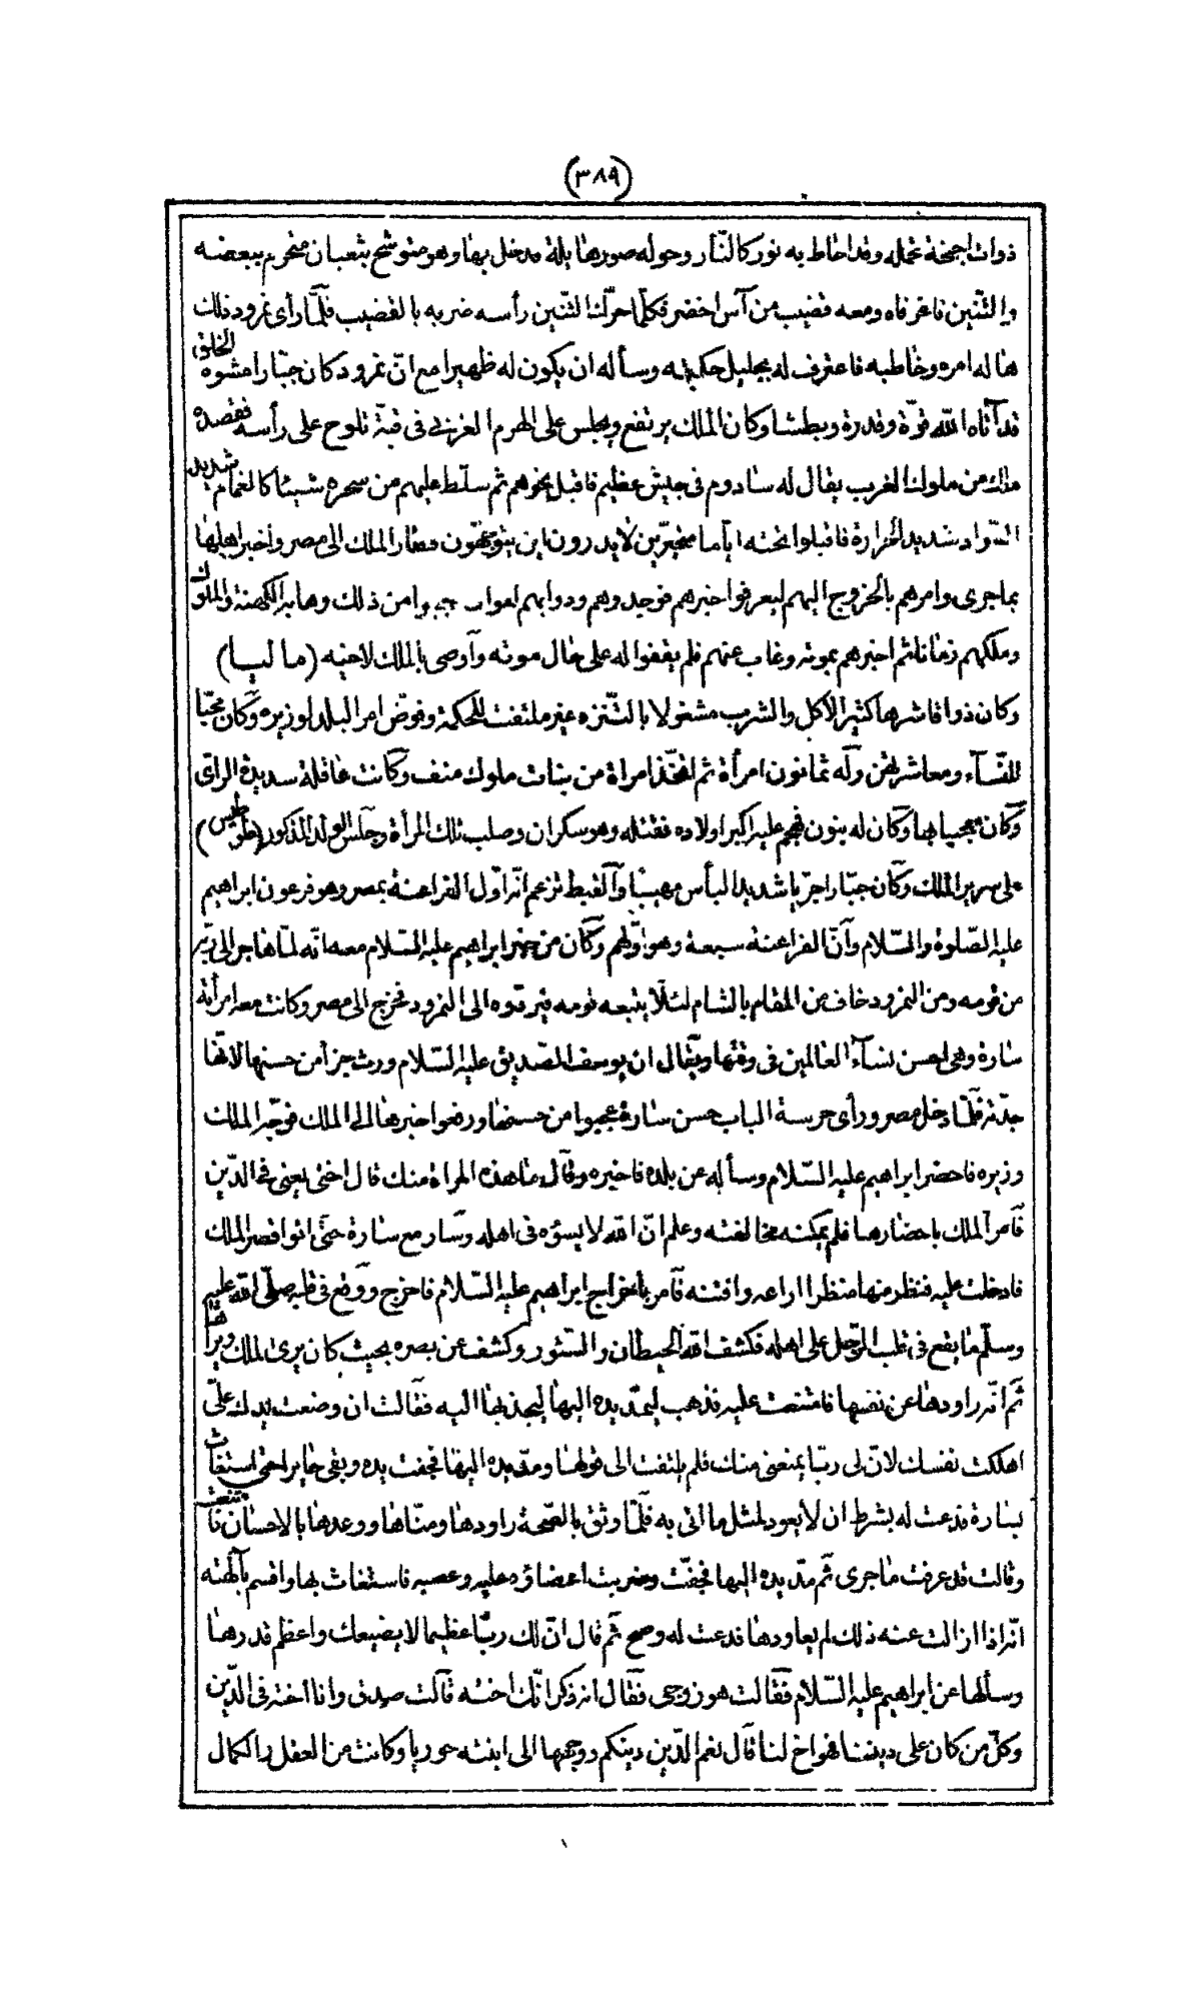 (٣٨٩)
ذوات اجنحة تحمله وقد احاط به نور كالنّار وحوله صور هائلة فدخل بها وهو متوشح بثعبان متحزم ببعضه
والتنّين فاغر فاه ومعه قضيب من آس اخضر فكلّما حرّك التنّين رأسه ضربه بالقضيب فلمّا رأى نمرود ذلك
هاله امره وخاطبه فاعترف له بجليل حكمته وسأله ان يكون له ظهيرا مع انّ نمرود كان جبّارا مشوه الخلق
قد آتاه اللّه قوّة وقدرة وبطشا وكان الملك يرتفع ويجلس على الهرم الغربى فى قبّة تلوح على رأسه فقصده
ملك من ملوك الغرب يقال له سادوم فى جيش عظيم فاقبل نحوهم ثم سلّط عليهم من سحره شيئا كالغمام شديد
السّواد شديد الحرارة فاقبلوا تحته ايّاما متحيّرين لا يدرون اين يتوجّهون فصار الملك الى مصر واخبر اهلها
بما جرى وامرهم بالخروج اليهم ليعرفوا خبرهم فوجدوهم ودوابهم اموات فعجبوا من ذلك وهابه الكهنة والملوك
وملكهم زمانا ثم اخبرهم بموته وغاب عنهم فلم يقفوا له على حال موته وآوصى بالملك لاخيه (ماليا)
وكان ذوا قا شرها كثير الاكل والشرب مشغولا بالتنّزه غير ملتفت للحكمة وفوّض امر البلد لوزيره وكان محبّا
للنّسآء ومعاشرتهن وله ثمانون امرأة ثم اتّخذ امراة من بنات ملوك منف وكانت عاقلة سديدة الرأى
وكان معجبا بها وكان له بنون فهجم عليه اكبر اولاده فقتله وهو سكران وصلب تلك المرأة وجلس الولد المذكور (طوطيس)
على سرير الملك وكان جبّارا جريا شديد البأس مهيبا وآلقبط تزعم انّه اوّل الفراعنة بمصر وهو فرعون ابراهيم
عليه الصّلوة والسّلام وأنّ الفراعنة سبعة وهو اوّلهم وكان من خبر ابراهيم عليه السّلام معه انّه لمّا هاجر الى ربّه
من قومه ومن النمرود خاف من المقام بالشام لئلّا يتبعه قومه فيردّوه الى النمرود فخرج الى مصر وكانت معه امرأته
سارة وهى احسن نسآء العالمين فى وقتها ويقال ان يوسف الصّديق عليه السّلام ورث جزأ من حسنها لانّها
جدّته فلمّا دخل مصر ورأى حرسة الباب حسن سارة عجبوا من حسنها ورفعوا خبرها الى الملك فوجّه الملك
وزيره فاحضر ابراهيم عليه السّلام وسأله عن بلده فاخبره وقال ما هذه المراة منك قال اختى يعنى فى الدّين
فأمر الملك باحضارها فلم يمكنه مخالفته وعلم انّ اللّه لا يسؤه فى اهله وسار مع سارة حتّى اتوا قصر الملك
فادخلت عليه فنظر منها منظرا اراعه وافتنه فآمر باخراج ابراهيم عليه السّلام فاخرج ووقع فى قلبه صلّى اللّه عليه
وسلّم ما يقع فى قلب الرّجل على اهله فكشف اللّه الحيطان والستور وكشف عن بصره بحيث كان يرى الملك ويراها
ثم انّه راودها عن نفسها فامتنعت عليه فذهب ليمدّ يده اليها ليجذبها اليه فقالت ان وضعت يدك علىّ
اهلكت نفسك لانّ لى ربّا يمنعنى منك فلم يلتفت الى قولها ومدّ يده اليها فجفت يده وبقى حايرا حتى استغاث
بسارة فدعت له بشرط ان لا يعود لمثل ما اتى به فلمّا وثق بالصّحة راودها ومنّاها ووعدها بالاحسان فامتنعت
وقالت قد عرفت ما جرى ثم مدّ يده اليها فجفّت وضربت اعضاؤه عليه وعصبه فاستغاث بها واقسم بآلهته
انّه اذا ازالت عنه ذلك لم يعاودها فدعت له وصح ثم قال انّ لك ربّا عظيما لا يضيعك واعظم قدرها
وسألها عن ابراهيم عليه السّلام فقالت هو زوجى فقال انه ذكر انّك اخته قالت صدق وانا اخته فى الدّين
وكلّ من كان على ديننا فهو اخ لنا قال نعم الدّين دينكم ووجّهها الى ابنته حوريا وكانت من العقل والكمال